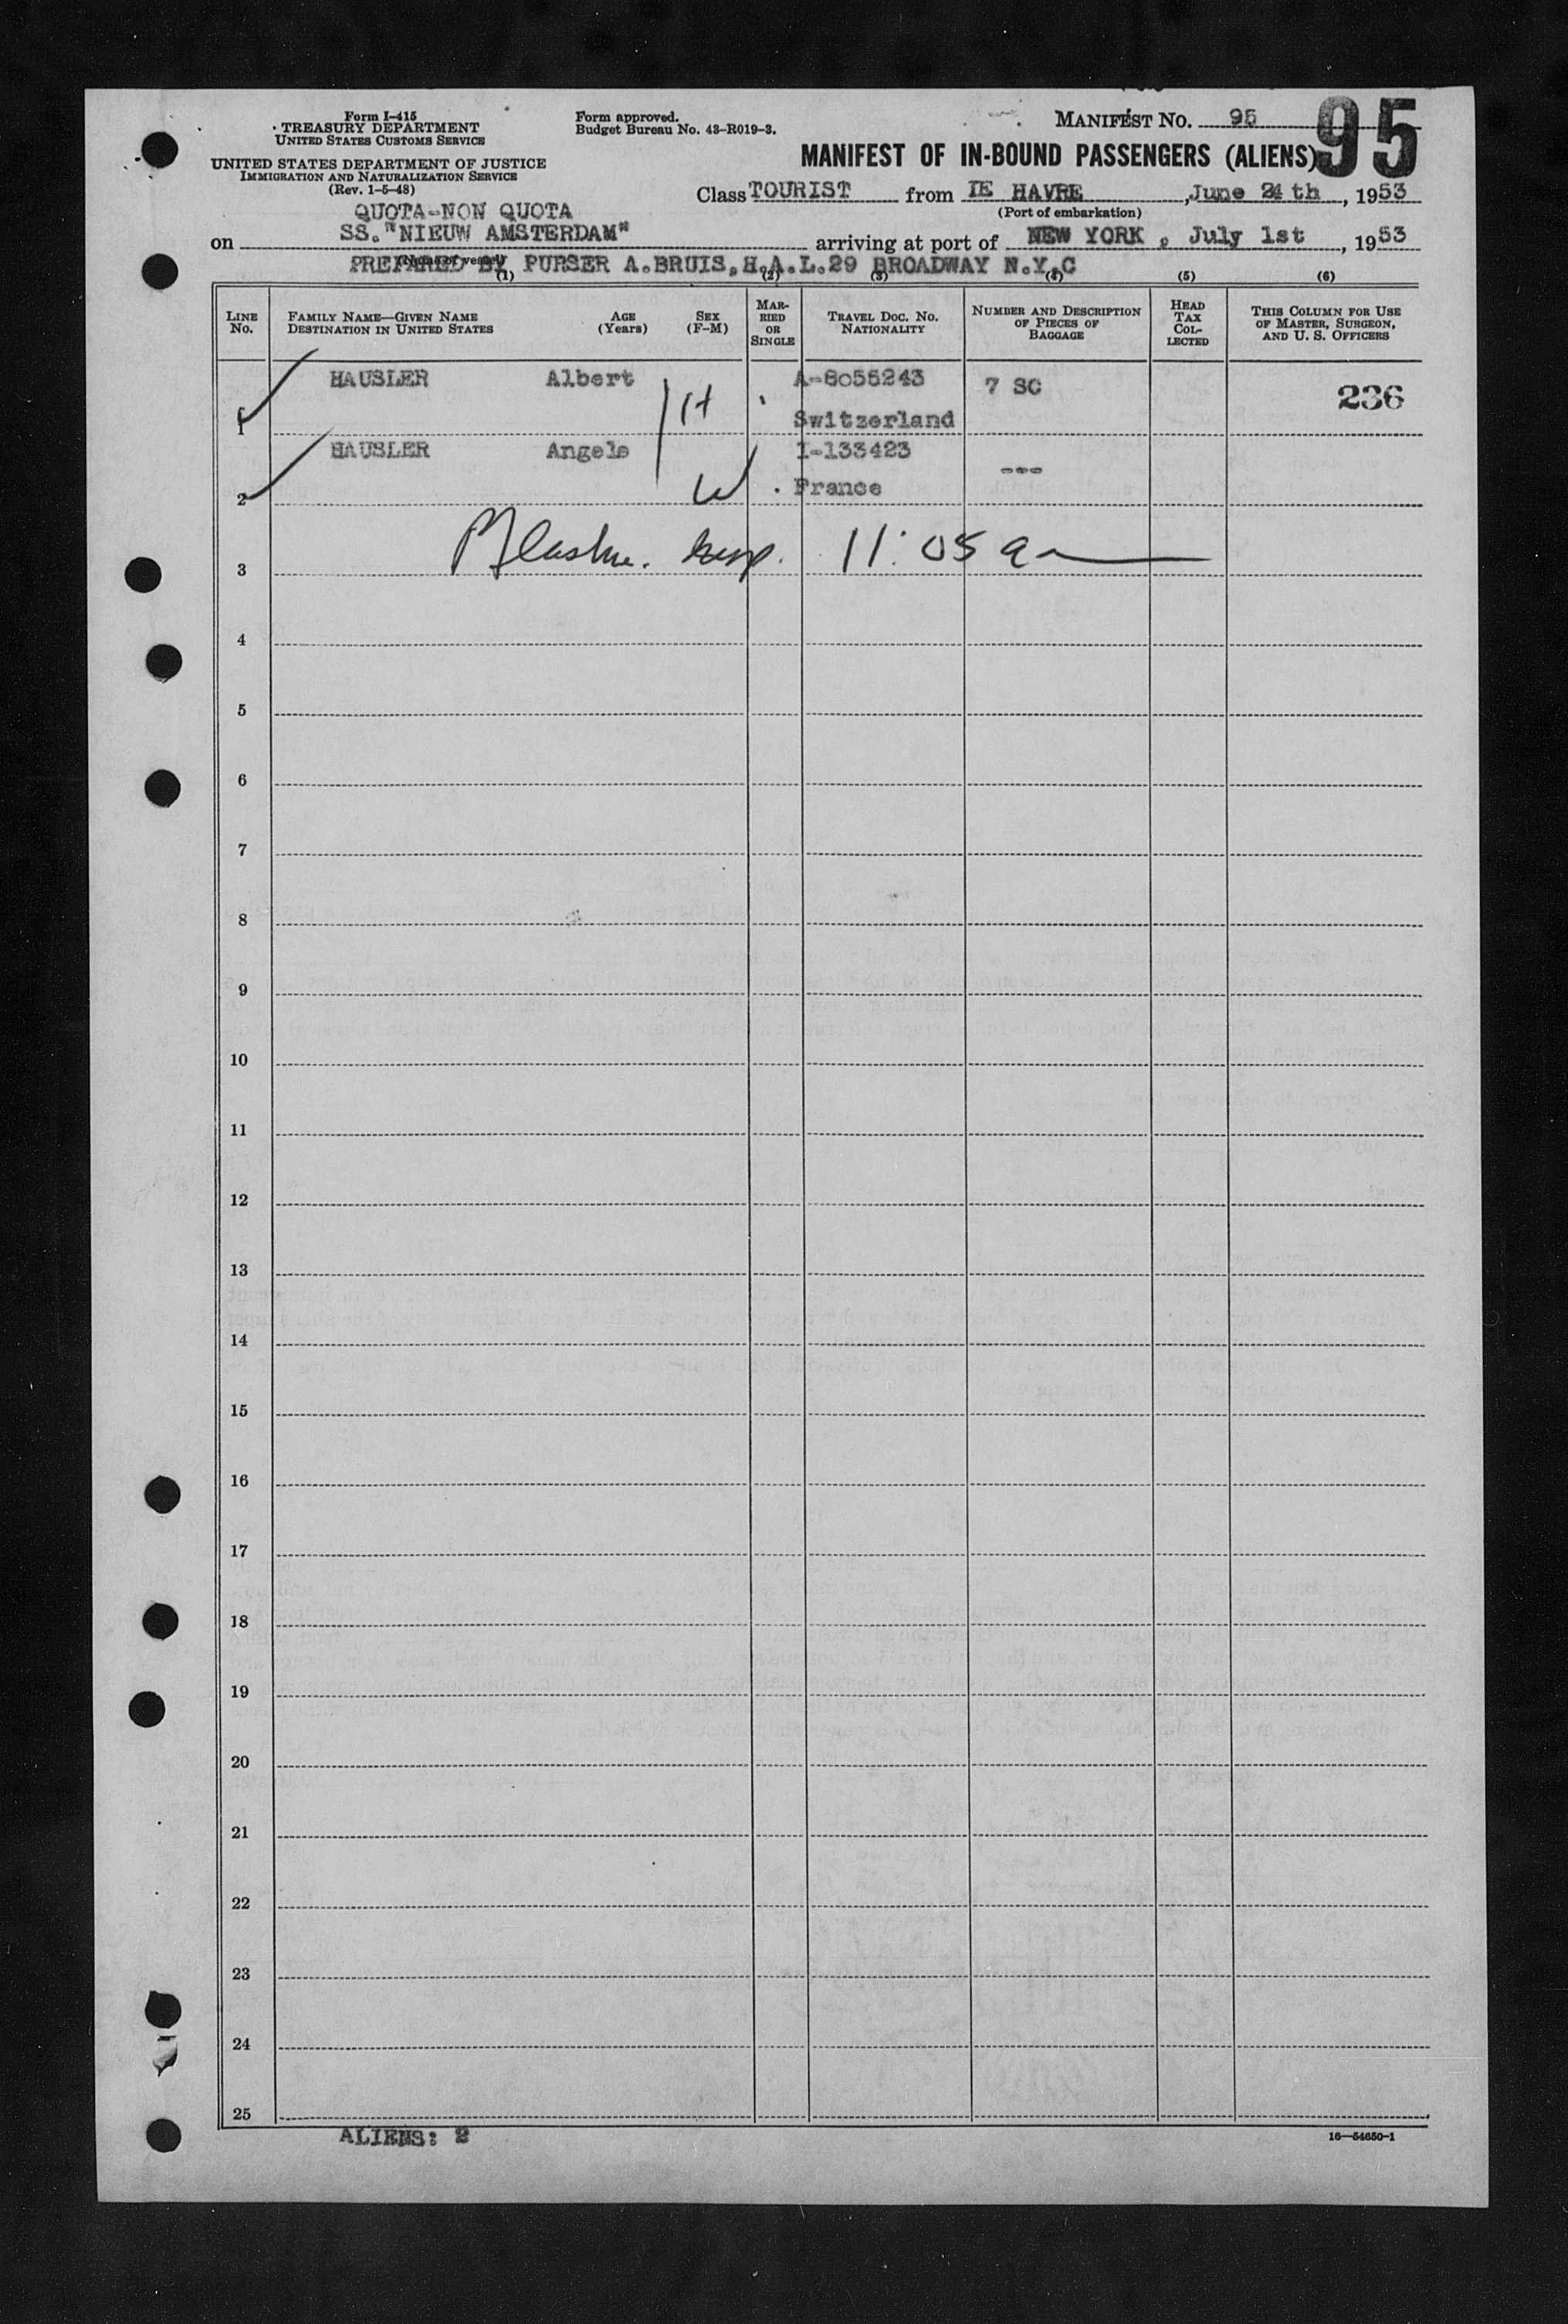 Form I-415
TREASURY DEPARTMENT
UNITED STATES CUSTOMS SERVICE
UNITED STATES DEPARTMENT OF JUSTICE
IMMIGRATION AND NATURALIZATION SERVICE
(Rev. 1-5-48)
Form approved.
Budget Bureau No. 43-R019-3.
MANIFEST NO. 95
95
MANIFEST OF IN-BOUND PASSENGERS (ALIENS)
Class TOURIST from LE HAVRE, June 24 th, 1953
(Port of embarkation)
QUOTA-NON QUOTA
on SS."NIEUW AMSTERDAM" arriving at port of NEW YORK, July 1st, 1953
(Name of vessel)
PREPARED BY PURSER A.BRUIS,H.A.L.29 BROADWAY N.Y.C
(1) (2) (3) (4) (5) (6)
LINE NO.
FAMILY NAME—GIVEN NAME DESTINATION IN UNITED STATES
AGE (Years)
SEX (F-M)
MARRIED OR SINGLE
TRAVEL DOC. NO. NATIONALITY
NUMBER AND DESCRIPTION OF PIECES OF BAGGAGE
HEAD TAX COLLECTED
THIS COLUMN FOR USE OF MASTER, SURGEON, AND U. S. OFFICERS
1 HAUSLER Albert H A-8055243 7 SC 236
Switzerland
2 HAUSLER Angele W I-133423 ---
France
3 11:05 a
4
5
6
7
8
9
10
11
12
13
14
15
16
17
18
19
20
21
22
23
24
25
ALIENS: 2
16—54650-1